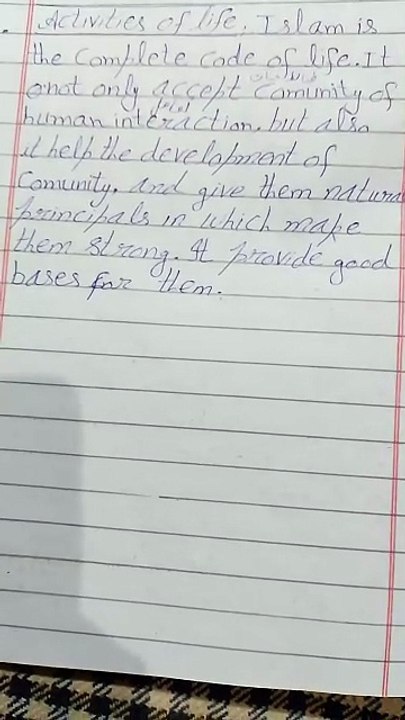 Activities of life. Islam is
the complete code of life. It
not only accept comunity of
human interaction. but also
it help the development of
Comunity. and give them natural
principals in which make
them strong. It provide good
bases for them.